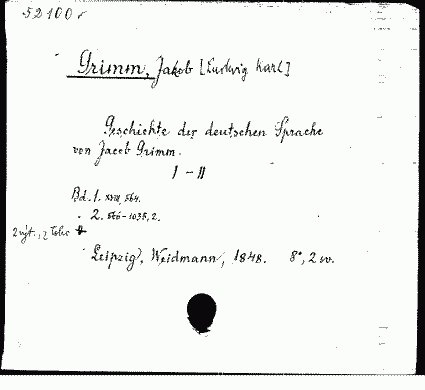 52100
Grimm, Jakob [Ludwig Karl]
Geschichte der deutschen Sprache
von Jacob Grimm.
I - II
Bd. 1. XVIII, 564.
" 2. 566-1035, 2.
Leipzig, Weidmann, 1848. 8°, 2 w.